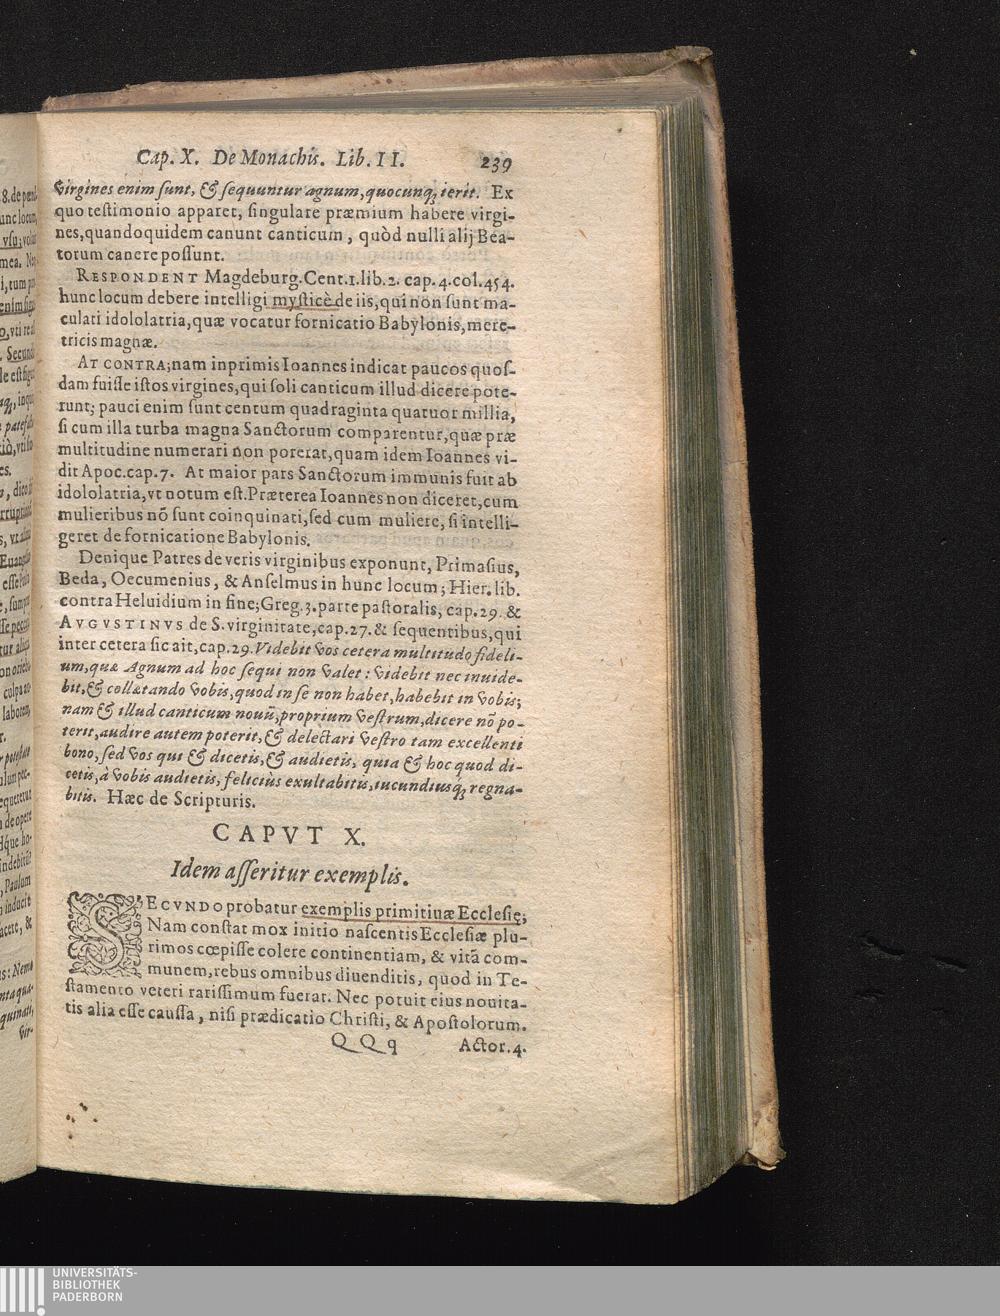 Cap. X. De Monachis. Lib. II. 239
Virgines enim sunt, & sequuntur agnum, quocunq; ierit. Ex
quo testimonio apparet, singulare præmium habere virgi-
nes, quandoquidem canunt canticum, quòd nulli alij Bea-
torum canere possunt.
RESPONDENT Magdeburg. Cent. 1. lib. 2. cap. 4. col. 454.
hunc locum debere intelligi mysticè de iis, qui non sunt ma-
culati idololatria, quæ vocatur fornicatio Babylonis, mere-
tricis magnæ.
AT CONTRA; nam inprimis Ioannes indicat paucos quos-
dam fuisse istos virgines, qui soli canticum illud dicere pote-
runt; pauci enim sunt centum quadraginta quatuor millia,
si cum illa turba magna Sanctorum comparentur, quæ præ
multitudine numerari non poterat, quam idem Ioannes vi-
dit Apoc. cap. 7. At maior pars Sanctorum immunis fuit ab
idololatria, vt notum est. Præterea Ioannes non diceret, cum
mulieribus nõ sunt coinquinati, sed cum muliere, si intelli-
geret de fornicatione Babylonis.
Denique Patres de veris virginibus exponunt, Primasius,
Beda, Oecumenius, & Anselmus in hunc locum; Hier. lib.
contra Heluidium in fine; Greg. 3. parte pastoralis, cap. 29. &
AVGVSTINVS de S. virginitate, cap. 27. & sequentibus, qui
inter cetera sic ait, cap. 29. Videbit vos cetera multitudo fideli-
um, quæ Agnum ad hoc sequi non valet: videbit nec inuide-
bit, & collætando vobis, quod in se non habet, habebit in vobis;
nam & illud canticum nouũ, proprium vestrum, dicere nõ po-
terit, audire autem poterit, & delectari vestro tam excellenti
bono, sed vos qui & dicetis, & audietis, quia & hoc quod di-
cetis, à vobis audietis, feliciùs exultabitis, iucundiusq́; regna-
bitis. Hæc de Scripturis.
CAPVT X.
Idem asseritur exemplis.
SECVNDO probatur exemplis primitiuæ Ecclesię;
Nam constat mox initio nascentis Ecclesiæ plu-
rimos cœpisse colere continentiam, & vitã com-
munem, rebus omnibus diuenditis, quod in Te-
stamento veteri rarissimum fuerat. Nec potuit eius nouita-
tis alia esse caussa, nisi prædicatio Christi, & Apostolorum.
QQq Actor. 4.
UNIVERSITÄTS-
BIBLIOTHEK
PADERBORN